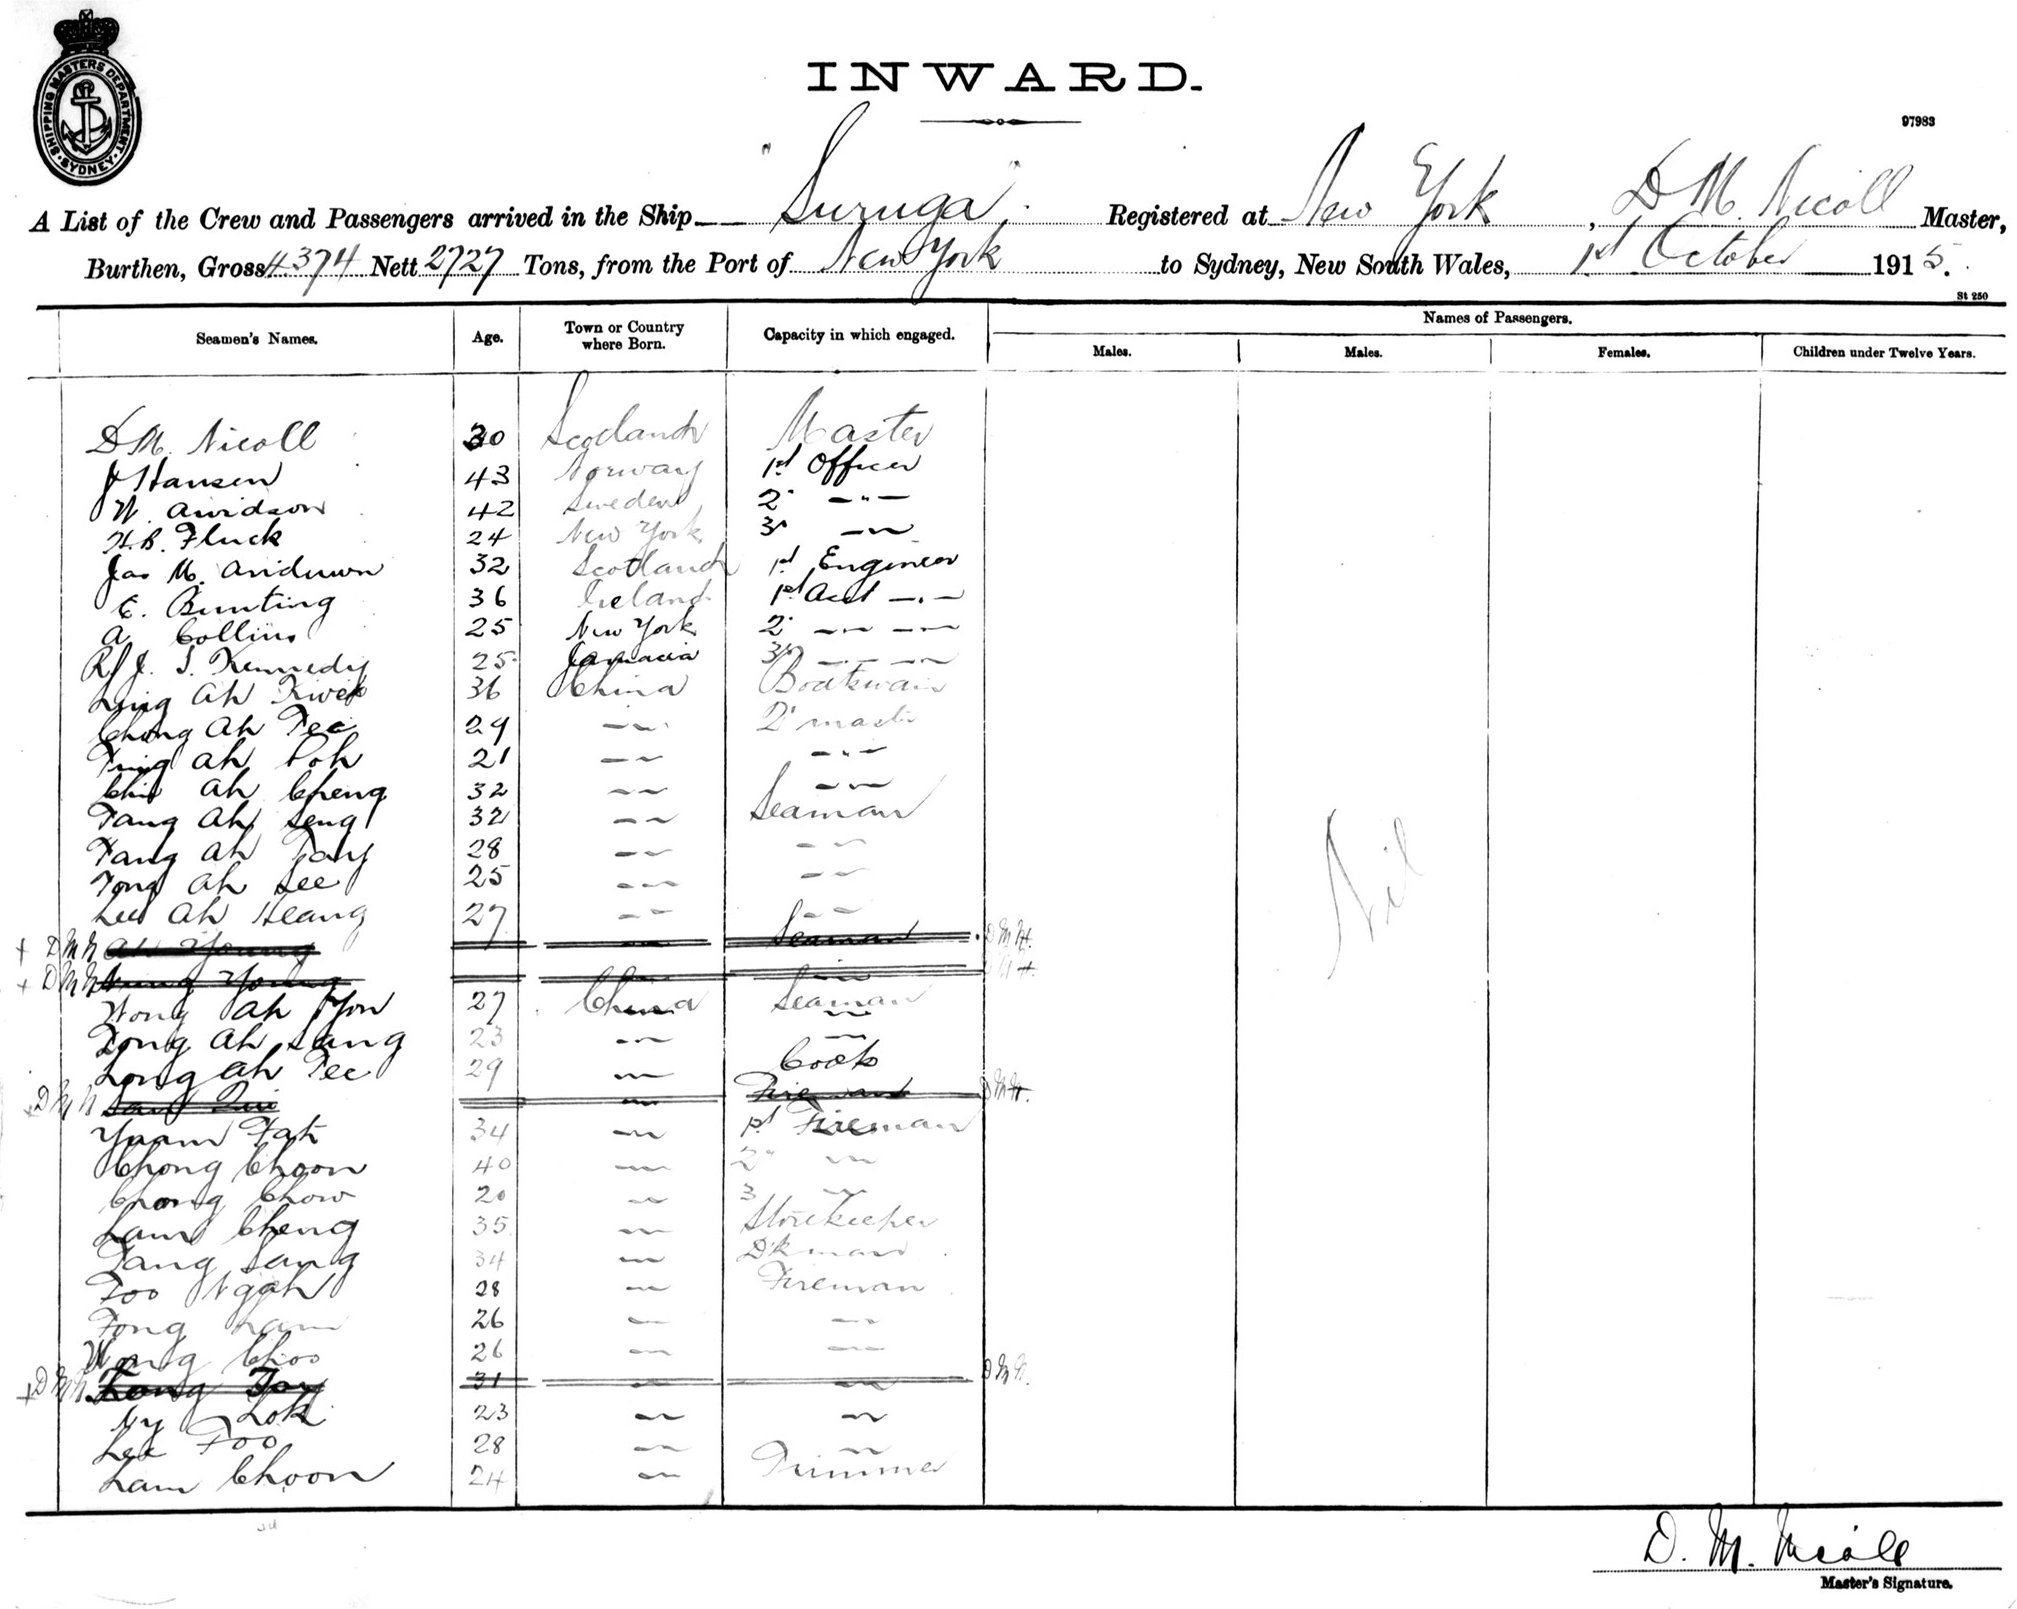 SHIPPING MASTERS DEPARTMENT
SYDNEY
INWARD.
97983
A List of the Crew and Passengers arrived in the Ship "Suruga" Registered at New York, D M. Nicoll Master,
Burthen, Gross 4374 Nett 2727 Tons, from the Port of New York to Sydney, New South Wales, 1st October 1915.
St 250
Seamen's Names. Age. Town or Country where Born. Capacity in which engaged. Names of Passengers.
Males. Males. Females. Children under Twelve Years.
D M. Nicoll 30 Scotland Master
J Hansen 43 Norway 1st Officer
W. Arvidson 42 Sweden 2" — " —
H.B. Fluck 24 New York 3" — " —
Jas M. 32 Scotland 1st Engineer
E. Bunting 36 Ireland 1st Asst — " —
A. Collins 25 New York 2" — " — — " —
R J. S. Kennedy 25 Jamacia 3" — " — — " —
Ling Ah Kwek 36 China Boatswain
Chong Ah Tee 29 — " — Q'master
Ah 21 — " — — " —
Ah Cheng 32 — " — — " —
Tang Ah Seng 32 — " — Seaman
Ah Tay 28 — " — — " —
Tong Ah See 25 — " — — " —
Lee Ah Heang 27 — " — — " —
+ D M N Ah Young — " — Seaman D M N.
+ D M N Young — " — — " — D M N
Wong Ah Yon 27 China Seaman
Tong Ah Sang 23 — " — — " —
Long Ah Tee 29 — " — Cook
+ D M N — " — Fireman D M N.
34 — " — 1st Fireman
Chong Choon 40 — " — 2" — " —
Chong Chow 20 — " — 3 — " —
Lam Cheng 35 — " — Storekeeper
Tang Sang 34 — " — D'kman
Foo Ngah 28 — " — Fireman
Fong Lam 26 — " — — " —
Wong Choo 26 — " — — " —
+ D M N Tay 31 — " — — " — D M N.
Ny Lok 23 — " — — " —
Lee Foo 28 — " — — " —
Lam Choon 24 — " — Trimmer
Nil
D. M. Nicoll
Master's Signature.